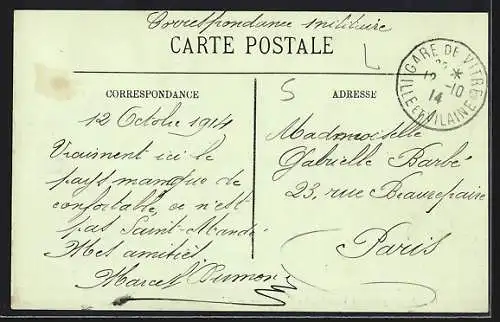 Correspondance militaire
CARTE POSTALE
CORRESPONDANCE
12 Octobre 1914
Vraiment ici le
pays manque de
confortable, ce n'est
pas Saint-Mandé
Mes amitiés
Marcel Dumon
ADRESSE
Mademoiselle
Gabrielle Barbé
23, rue Beaurepaire
Paris
GARE DE VITRÉ
12 -10
14
ILLE ET VILAINE